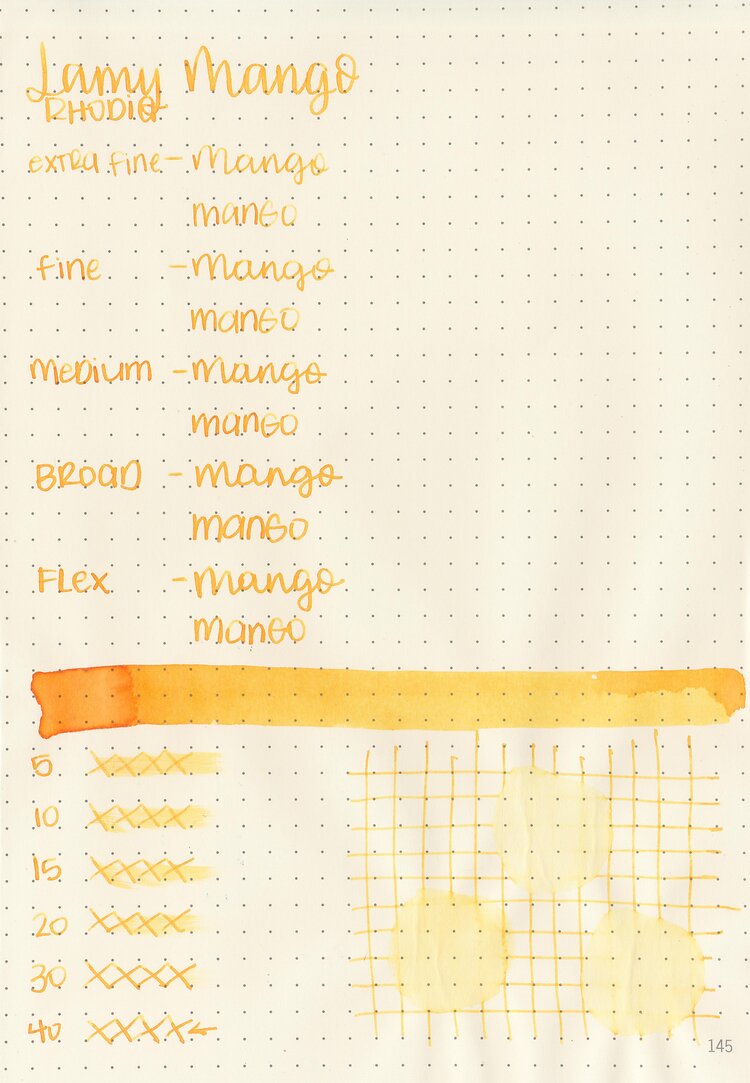 Lamy Mango
RHODIA
extra fine - Mango
mango
fine - Mango
mango
Medium - Mango
mango
BROAD - Mango
mango
FLex - Mango
mango
5 XXXX
10 XXXX
15 XXXX
20 XXXX
30 XXXX
40 XXXX←
145